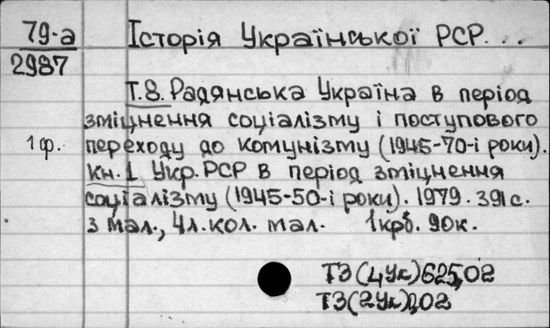 79-а
2987
Історія Української РСР...
Т.8. Радянська Україна в період
зміцнення соціалізму і поступового
1 ф. переходу до комунізму (1945-70-і роки).
Кн.1 Укр. РСР в період зміцнення
соціалізму (1945-50-і роки). 1979. 391 с.
з мал., 4 л. кол. мал. 1 крб. 90 к.
ТЗ(4Ук)625,02
ТЗ(2Ук),02